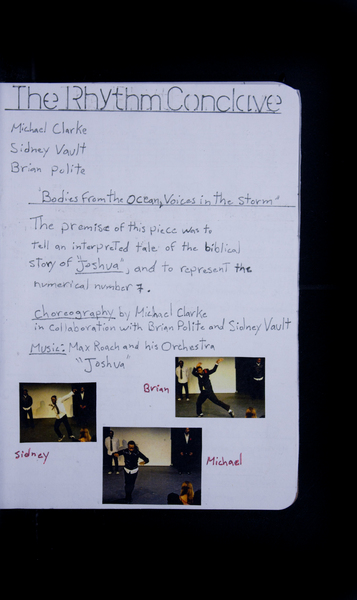 The Rhythm Conclave
Michael Clarke
Sidney Vault
Brian Polite
"Bodies From the Ocean, Voices in The Storm"
The premise of this piece was to
tell an interpreted tale of the biblical
story of "Joshua", and to represent the
numerical number 7.
Choreography by Michael Clarke
in collaboration with Brian Polite and Sidney Vault
Music: Max Roach and his Orchestra
"Joshua"
Brian
Sidney
Michael